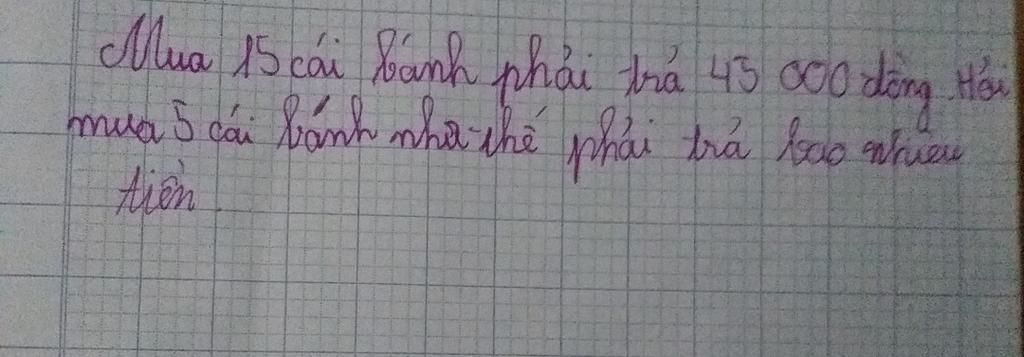 Mua 15 cái bánh phải trả 45 000 đồng. Hỏi
mua 5 cái bánh như thế phải trả bao nhiêu
tiền